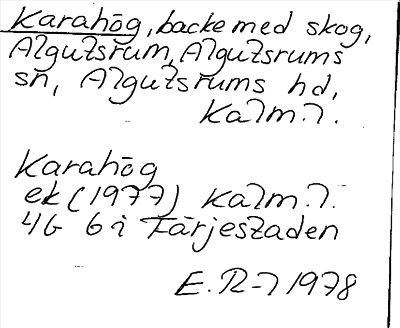 Karahōg, backe med skog,
Algutsrum, Algutsrums
sn, Algutsrums hd,
Kalm. l.
Karahōg
ek (1977) Kalm. l.
4G 6i Färjestaden
E. R-l 1978